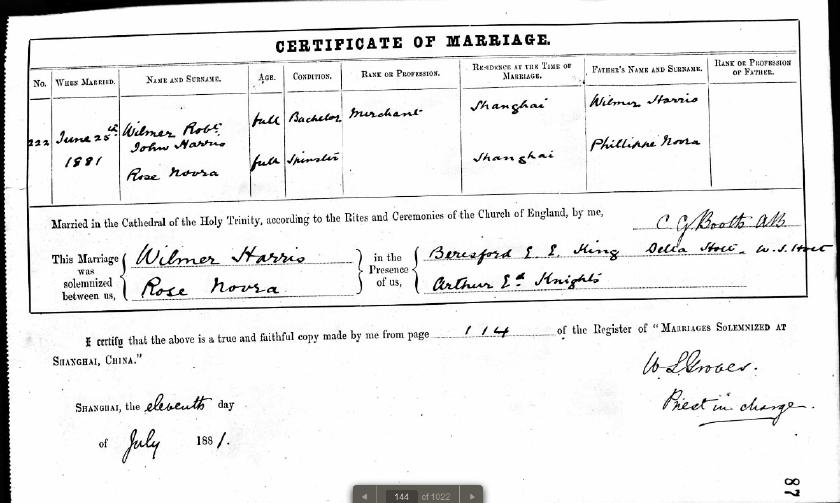 CERTIFICATE OF MARRIAGE.
No. WHEN MARRIED. NAME AND SURNAME. AGE. CONDITION. RANK OR PROFESSION. RESIDENCE AT THE TIME OF MARRIAGE. FATHER'S NAME AND SURNAME. RANK OR PROFESSION OF FATHER.
222 June 25th 1881 Wilmer Robt. John Harris full Bachelor Merchant Shanghai Wilmer Harris
Rose Novra full Spinster Shanghai Phillippe Novra
Married in the Cathedral of the Holy Trinity, according to the Rites and Ceremonies of the Church of England, by me, C G Booth AB
This Marriage was solemnized between us, Wilmer Harris in the Presence of us, Beresford E. E. King Della Holt. W. S. Holt
Rose Novra Arthur Ed Knights
I certify that the above is a true and faithful copy made by me from page 114 of the Register of "MARRIAGES SOLEMNIZED AT
SHANGHAI, CHINA."
W L Groves.
SHANGHAI, the eleventh day
Priest in charge.
of July 1881.
87
144 of 1022